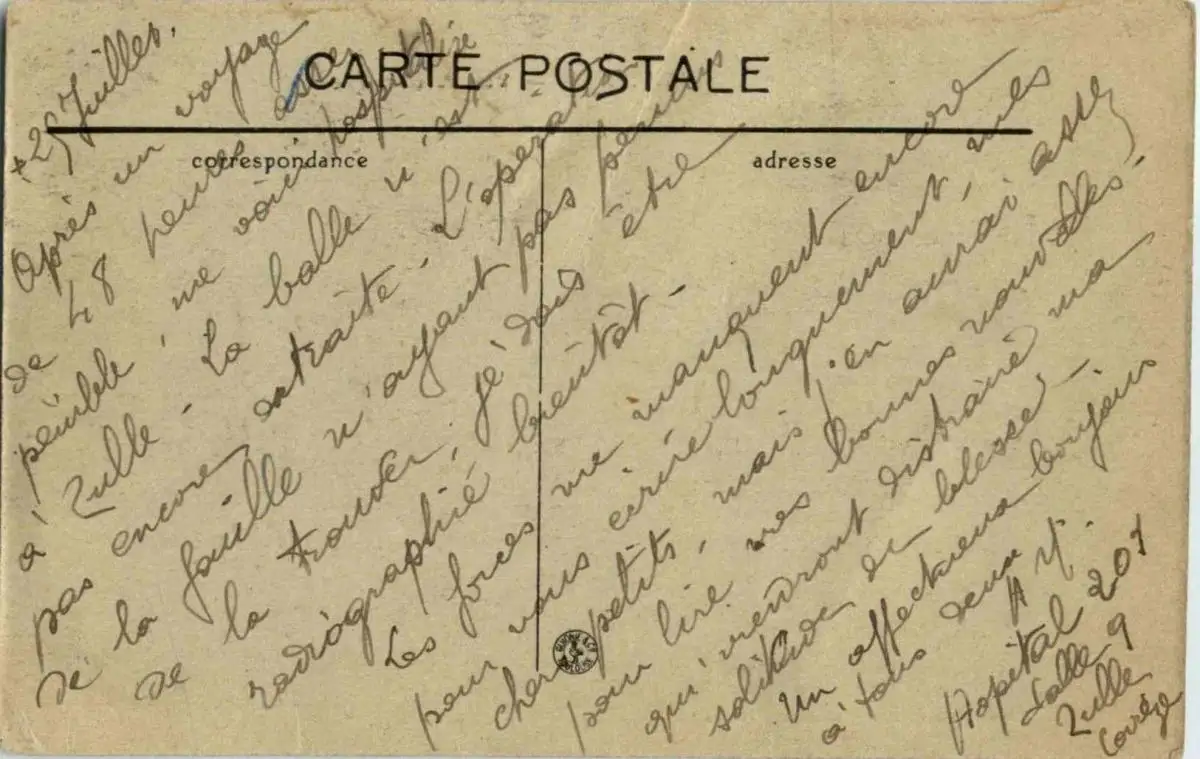 CARTE POSTALE
correspondance
adresse
27 Juillet.
Après un voyage
de 48 heures assez
pénible, me voici hospitalisé
à Tulle. La balle n'est
pas encore extraite. L'opérat
de la fouille n'ayant pas permis
de la trouver, je dois être
radiographié bientôt.
Les forces me manquent encore
pour vous écrire longuement, mes
chers petits, mais j'en aurai assez
pour lire vos bonnes nouvelles.
qui viendront distraire ma
solitude de blessé.
Un affectueux bonjour
à tous deux
Hopital 201
Salle 9
Tulle
Corrèze